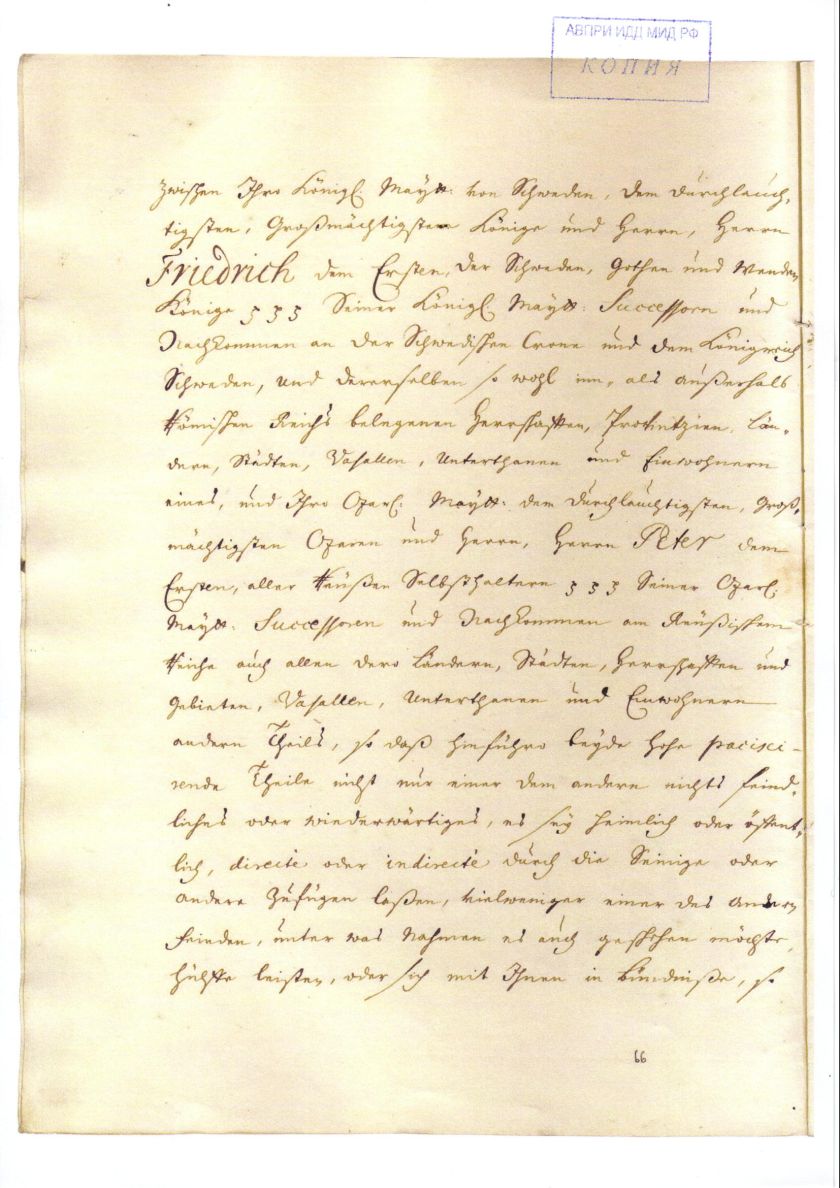 АВПРИ ИДД МИД РФ
КОПИЯ
zwischen Ihro Königl. Maytt: von Schweden, dem durchlauch„
tigsten, Großmächtigsten Könige und Herrn, Herrn
Friedrich dem Ersten, der Schweden, Gothen und Wenden
Könige ꝫ ꝫ ꝫ Seiner Königl. Maytt: Successorn und
Nachkommen an der Schwedischen Crone und dem Königreich
Schweden, und dererselben so wohl inn, als außerhalb
Römischen Reichs belegenen Herrschafften, Provintzien, Län„
dern, Städten, Vasallen, Unterthanen und Einwohnern
eines, und Ihro Czarl: Maytt: dem durchläuchtigsten, Groß„
mächtigsten Czaren und Herrn, Herrn Peter dem
Ersten, aller Reüßen Selbsthaltern ꝫ ꝫ ꝫ Seiner Czarl:
Maytt: Successoren und Nachkommen am Reüßischem
Reiche auch allen dero Ländern, Städten, Herrschafften und
Gebieten, Vasallen, Unterthanen und Einwohnern
andern Theils, so daß hinführo beyde hohe pacisci-
rende Theile nicht nur einer dem andern nichts feind„
liches oder wiederwärtiges, es sey heimlich oder öffent„
lich, directè oder indirectè durch die Seinige oder
andere zufügen laßen, vielweniger einer des andern
Feinden, unter was Nahmen es auch geschehen möchte,
hülffe leisten, oder sich mit Ihnen in Bündniße, so
66